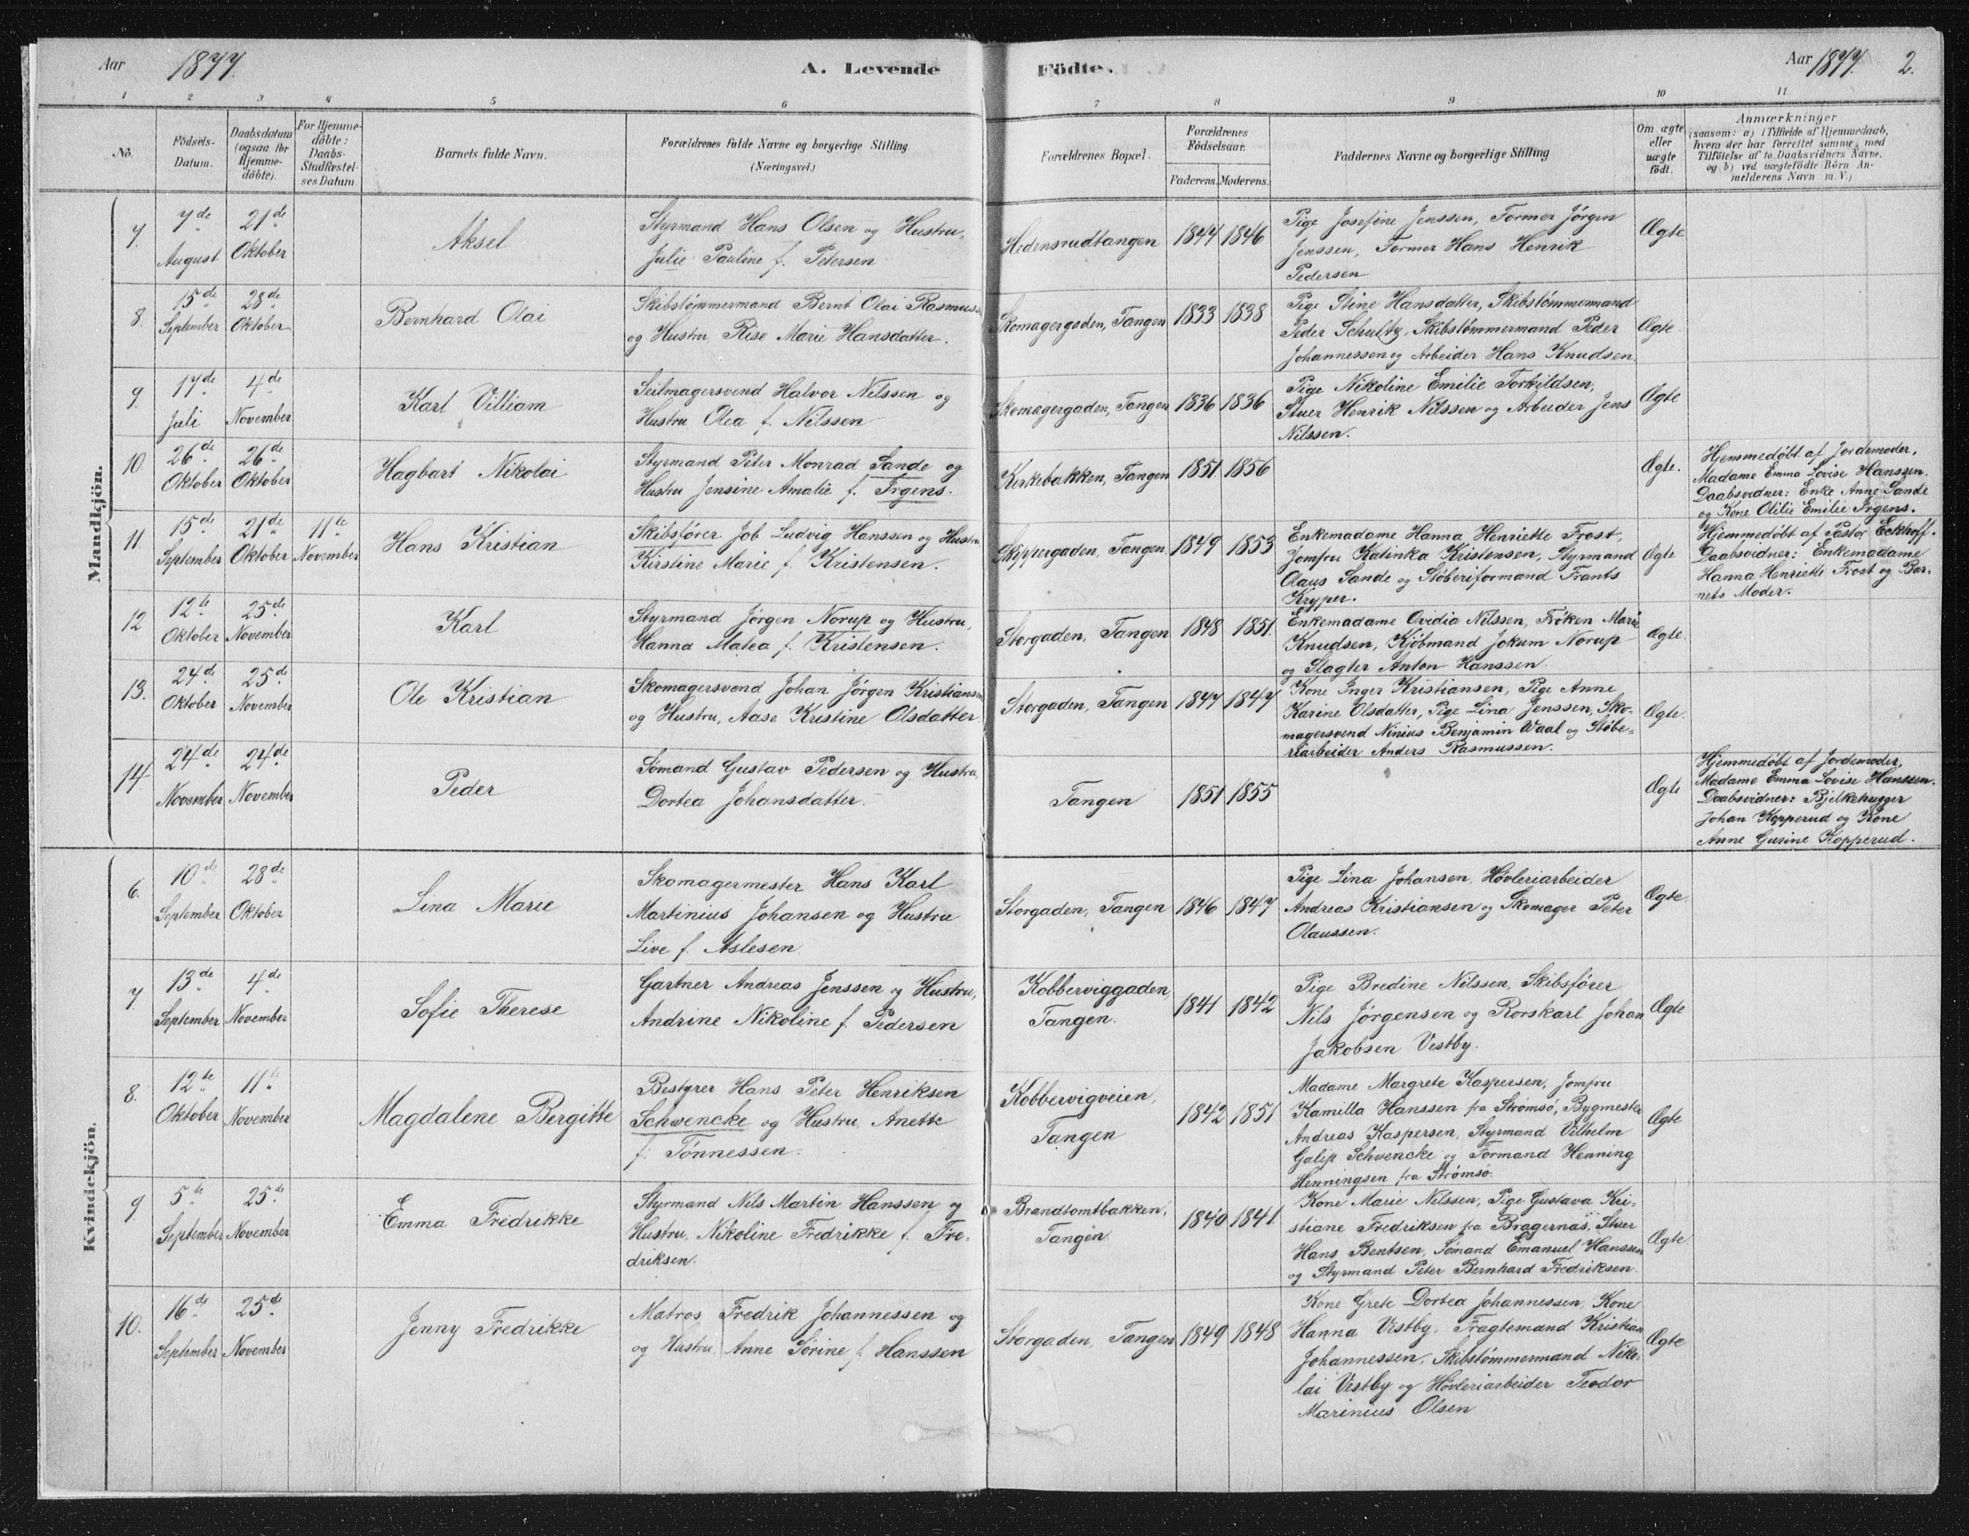 Aar 1877.
A. Levende Födte.
Aar 1877. 2.
1 2 3 4 5 6 7 8 9 10 11
No.
Födsels-
Datum.
Daabsdatum
(ogsaa for
Hjemme-
döbte).
For Hjemme-
döbte:
Daabs-
Stadfæstel-
ses Datum
Barnets fulde Navn.
Forældrenes fulde Navne og borgerlige Stilling
(Næringsvei.)
Forældrenes Bopæl.
Forældrenes
Födselsaar.
Faderens. Moderens.
Faddernes Navne og borgerlige Stilling
Om ægte
eller
uægte
födt.
Anmærkninger
(saasom: a) i Tilfælde af Hjemmedaab,
hvem der har forrettet samme, med
Tilföielse af to Daabsvidners Navne.
og b) ved uægtefödte Börn An-
melderens Navn m. V.)
Mandkjön.
7.
7de
August
21de
Oktober
Aksel
Styrmand Hans Olsen og Hustru,
Julie Pauline f. Petersen
Hedensrudtangen
1844 1846
Pige Josefine Jenssen, Former Jørgen
Jenssen, Former Hans Henrik
Pedersen
Ægte
8.
15de
September
28de
Oktober
Bernhard Olai
Skibstømmermand Bernt Olai Rasmuss.
og Hustru, Rise Marie Hansdatter.
Skomagergaden, Tangen
1833 1838
Pige Stine Hansdatter, Skibstømmermand
Peder Schultz, Skibstømmermand Peder
Johannessen og Arbeider Hans Knudsen.
Ægte.
9.
17de
Juli
4de
November
Karl Villiam
Seilmagersvend Halvor Nilssen og
Hustru Olea f. Nilssen
Skomagergaden, Tangen
1836 1836
Pige Nikoline Emilie Torkildsen,
Stuer Henrik Nilssen og Arbeider Jens
Nilssen.
Ægte
10.
26de
Oktober
26de
Oktober
Hagbart Nikolai
Styrmand Peter Monrad Sande og
Hustru Jensine Amalie f. Irgens.
Kirkebakken, Tangen
1851 1856
Ægte.
Hjemmedøbt af Jordemoder,
Madame Emma Lovise Hanssen.
Daabsvidner: Enke Anne Sande
og Kone Otilie Emilie Irgens.
11.
15de
September
21de
Oktober
11te
November
Hans Kristian
Skibsfører Job Ludvig Hanssen og Hustru
Kirstine Marie f. Kristensen.
Skippergaden, Tangen
1849 1853
Enkemadame Hanna Henriette Frost,
Jomfru Katinka Kristensen, Styrmand
Olaus Sande og Støberiformand Frants
Kryper.
Ægte
Hjemmedøbt af Pastor Eckhoff.
Daabsvidner: Enkemadame
Hanna Henriette Frost og Bar-
nets Moder.
12
12te
Oktober
25de
November
Karl
Styrmand Jörgen Norup og Hustru,
Hanna Matea f. Kristensen.
Storgaden, Tangen
1848 1851.
Enkemadame Ovidia Nilssen, Frøken Marie
Knudsen, Kjøbmand Jokum Norup
og Slagter Anton Hanssen.
Ægte.
13.
24de
Oktober
25de
November
Ole Kristian
Skomagersvend Johan Jörgen Kristiansen
og Hustru, Aase Kristine Olsdatter
Storgaden, Tangen
1847 1847
Kone Inger Kristiansen, Pige Anne
Karine Olsdatter, Pige Lina Jenssen, Sko-
magersvend Ninius Benjamin Waal og Støbe-
riarbeider Anders Rasmussen.
Ægte.
14
24de
November
24de
November
Peder
Sømand Gustav Pedersen og Hustru,
Dortea Johansdatter.
Tangen
1851 1855
Ægte
Hjemmedøbt af Jordemoder,
Madame Emma Lovise Hanssen.
Daabsvidner: Bjelkehugger
Johan Kopperud og Kone
Anne Gusine Kopperud.
Kvindekjön.
6.
10de
September
28de
Oktober
Lina Marie
Skomagermester Hans Karl
Martinius Johansen og Hustru
Live f. Aslesen.
Storgaden, Tangen
1846 1847
Pige Lina Johansen, Høvleriarbeider
Andreas Kristiansen og Skomager Peter
Olaussen.
Ægte.
7
13de
September
4de
November
Sofie Therese
Gartner Andreas Jenssen og Hustru,
Andrine Nikoline f. Pedersen
Kobberviggaden,
Tangen.
1841 1842
Pige Bredine Nilssen, Skibsfører
Nils Jörgensen og Rorskarl Johan
Jakobsen Vestby.
Ægte
8.
12te
Oktober
11te
November
Magdalene Bergitte
Bestyrer Hans Peter Henriksen
Schwencke og Hustru, Anette
f. Tönnessen.
Kobbervigveien,
Tangen
1842 1851
Madame Margrete Kaspersen, Jomfru
Kamilla Hanssen fra Strømsø, Bygmester
Andreas Kaspersen, Styrmand Vilhelm
Galip Schwencke og Formand Henning
Henningsen fra Strømsø.
Ægte
9.
5te
September
25de
November
Emma Fredrikke
Styrmand Nils Martin Hanssen og
Hustru, Nikoline Fredrikke f. Fre-
driksen.
Brandtomtbakken,
Tangen
1840 1841
Kone Marie Nilssen, Pige Gustava Kri-
stiane Fredriksen fra Bragernæs, Stuer
Hans Bentsen, Sømand Emanuel Hanssen
og Styrmand Peter Bernhard Fredriksen.
Ægte
10.
16de
September
25de
November
Jenny Fredrikke
Matros Fredrik Johannessen og
og Hustru, Anne Sörine f. Hanssen
Storgaden, Tangen
1849 1848
Kone Grete Dortea Johannessen, Kone
Hanna Vestby, Fragtemand Kristian
Johannessen, Skibstømmermand Niko-
lai Vestby og Høvleriarbeider Teodor
Marinius Olsen
Ægte